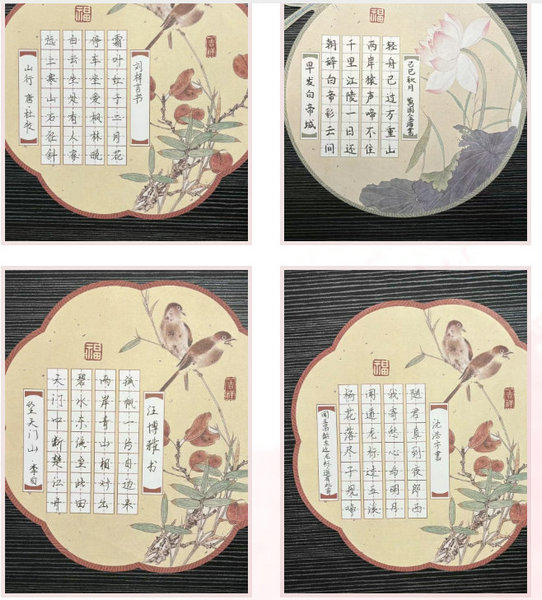 福
吉祥
山行 唐·杜牧
远上寒山石径斜
白云生处有人家
停车坐爱枫林晚
霜叶红于二月花
刘梓言书
早发白帝城
朝辞白帝彩云间
千里江陵一日还
两岸猿声啼不住
轻舟已过万重山
己巳秋月
福
吉祥
望天门山 李白
天门中断楚江开
碧水东流至此回
两岸青山相对出
孤帆一片日边来
汪博雅书
福
吉祥
闻王昌龄左迁龙标遥有此寄
杨花落尽子规啼
闻道龙标过五溪
我寄愁心与明月
随君直到夜郎西
沈浩宇书